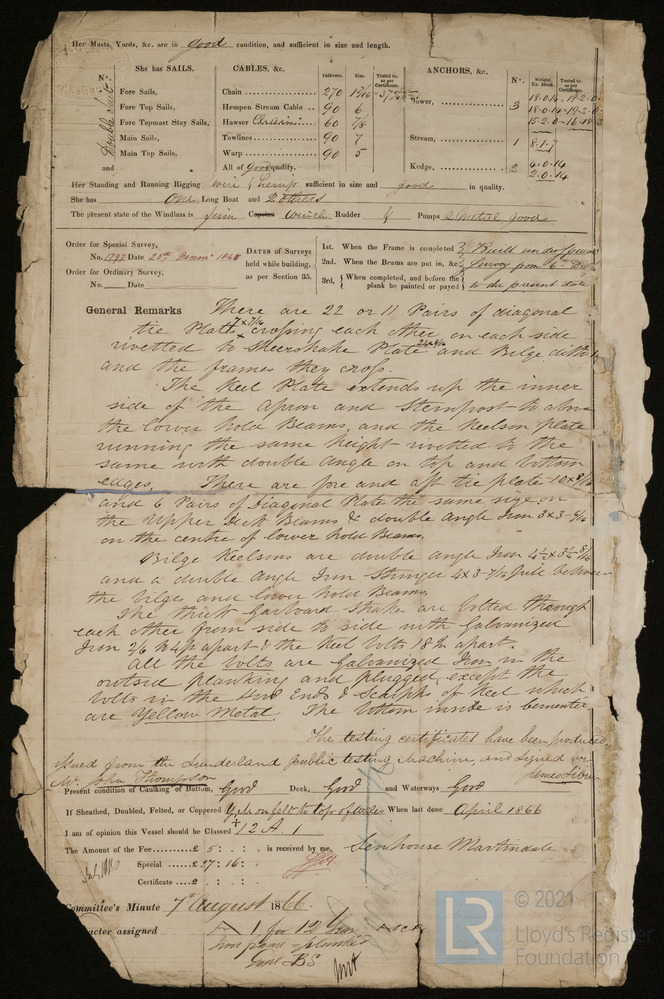 Her Masts, Yards, &c. are in good condition, and sufficient in size and length.
She has SAILS. CABLES, &c. Fathoms. Size. Tested to, as per Certificate. ANCHORS, &c. Nos. Weight. Ex. Stock. Tested to, as per Certificate.
Fore Sails, Chain 270
Bower, 3 18.0.14 19.2.0
Fore Top Sails, Hempen Stream Cable 90 6
18.0.14 19.2.0
Fore Topmast Stay Sails, Hawser 60 7/8
15.2.0
Main Sails, Towlines 90 7 Stream, 1 8.1.7
Main Top Sails, Warp 90 5
and All of Good quality. Kedge, 2 4.0.14
2.0.14
Her Standing and Running Rigging wire & hemp sufficient in size and good in quality.
She has One Long Boat and 2 others
The present state of the Windlass is firm Capstan Winch Rudder Pumps 2 Metal good
Order for Special Survey, DATES of Surveys held while building, as per Section 35.
No. 1797 Date
Order for Ordinary Survey,
No. Date
1st. When the Frame is completed Built under special
2nd. When the Beams are put in, &c. Survey from 6th
3rd. When completed, and before the plank be painted or payed to the present date
General Remarks There are 22 or 11 Pairs of diagonal
tie Plate 7 x 7/16 crossing each other on each side
rivetted to Sheerstrake Plate and Bilge
and the frames they cross.
The Keel Plate extends up the inner
side of the Apron and Sternpost to above
the lower hold Beams, and the Keelson plate
running the same height rivetted to the
same with double angle on top and bottom
edges. There are fore and aft tie plate 10 x
and 6 Pairs of Diagonal Plate the same size on
the Upper Deck Beams & double angle Iron 3 x 3
on the centre of lower hold Beams.
Bilge Keelsons are double angle Iron
and a double angle Iron Stringer 4 x 3 - 7/16 between
the bilges and lower hold Beams.
The thick Garboard Strakes are bolted through
each other from side to side with Galvanized
Iron apart & the Keel bolts 18 In apart.
All the bolts are Galvanized Iron in the
outside planking and plugged, except the
bolts in the Ends & Scarphs of Keel which
are Yellow Metal. The bottom inside is cemented
The testing certificates have been produced,
issued from the Sunderland public testing Machine, and signed
Mr. John Thompson James
Present condition of Caulking of Bottom, Good Deck, Good and Waterways Good
If Sheathed, Doubled, Felted, or Coppered When last done April 1866
I am of opinion this Vessel should be Classed 12 A. 1
The Amount of the Fee £ 5 : : is received by me, Senhouse Martindale
Special £ 27 : 16 :
Certificate £ : :
Committee's Minute 7th August 1866.
Character assigned A 1 for 12 Years
© 2021
LR Lloyd's Register
Foundation